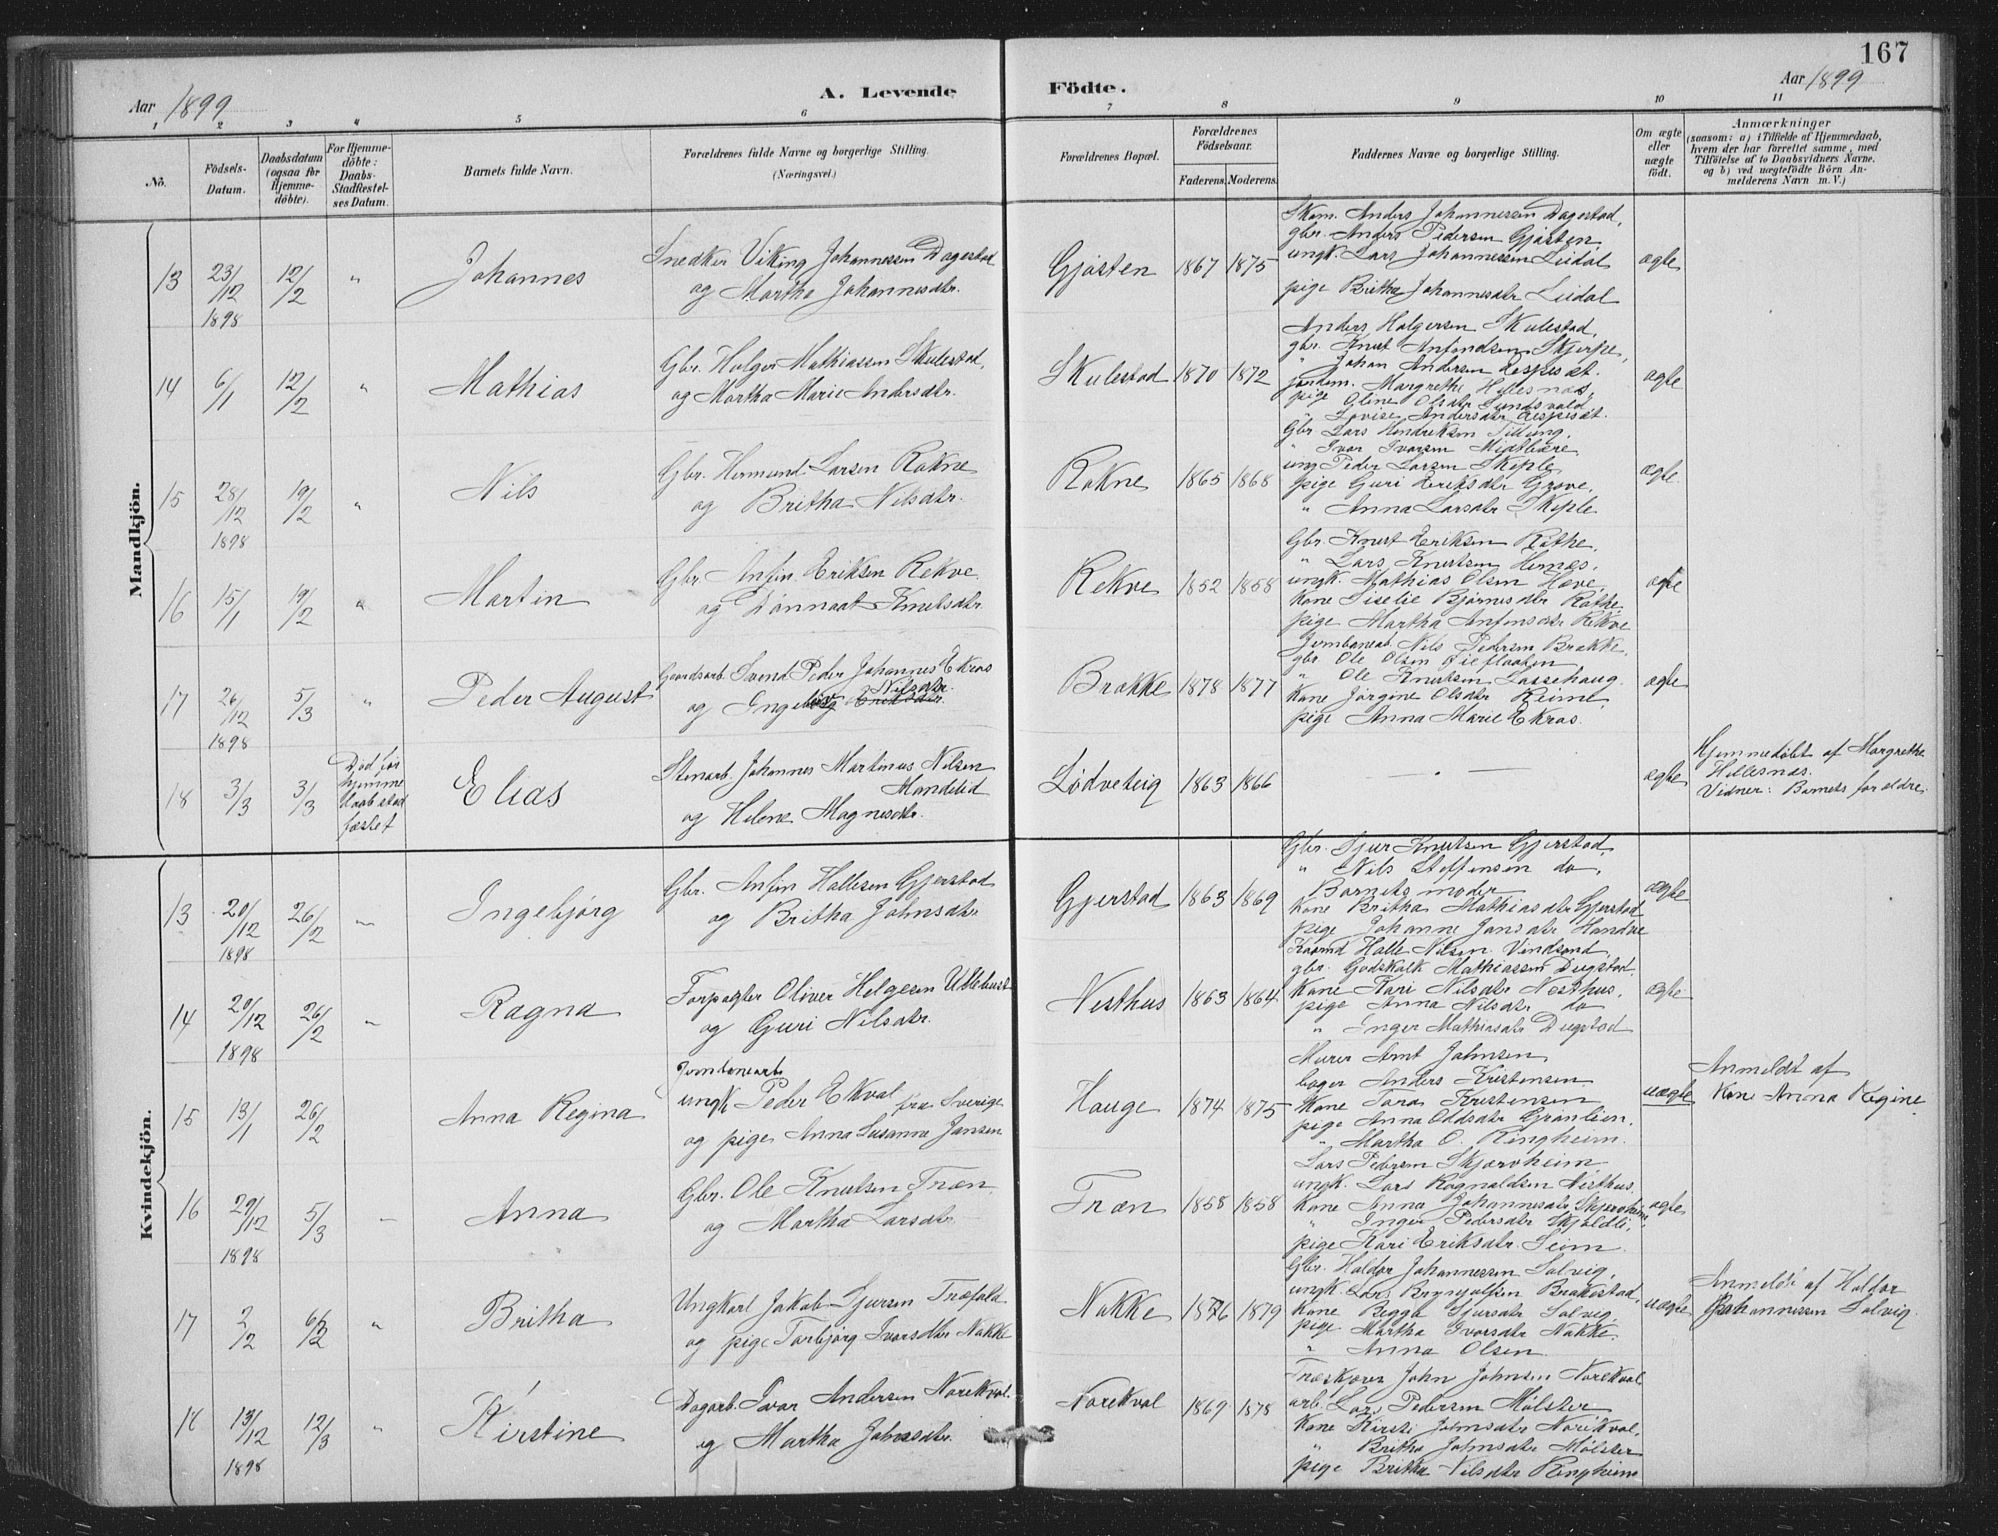 167
Aar 1899
A. Levende Födte.
Aar 1899
1 2 3 4 5 6 7 8 9 10 11
No.
Födsels-
Datum.
Daabsdatum
(ogsaa for
Hjemme-
döbte).
For Hjemme-
döbte:
Daabs-
Stadfæstel-
ses Datum.
Barnets fulde Navn.
Forældrenes fulde Navne og borgerlige Stilling.
(Næringsvei.)
Forældrenes Bopæl.
Forældrenes
Födselsaar.
Faderens. Moderens.
Faddernes Navne og borgerlige Stilling.
Om ægte
eller
uægte
födt.
Anmærkninger
(saasom: a) i Tilfælde af Hjemmedaab,
hvem der har forrettet samme, med
Tilföielse af to Daabsvidners Navne.
og b) ved uægtefödte Börn An-
melderens Navn m. V.)
Mandkjön.
13 23/12 1898 12/2 " Johannes
Snedker Viking Johannessen Dagestad
og Martha Johannesdtr.
Gjösten 1867 1875
Skom. Anders Johannessen Dagestad,
gbr. Anders Pedersen Gjösten,
ungk. Lars Johannessen Liidal
pige Britha Johannesdtr Liidal
ægte
14 6/1 12/2 " Mathias
Gbr. Holger Mathiassen Skulestad,
og Martha Marie Andersdtr.
Skulestad 1870 1872
Anders Holgersen Skulestad,
gbr. Knut Anfindsen Skjerpe,
" Johan Andersen
jordm. Margrethe Hellesnæs,
pige Oline Olsdtr Sundsvald
" Lovise Andersdtr
ægte
15 28/12 1898 19/2 " Nils
Gbr. Hermund Larsen Rokne
og Britha Nilsdtr.
Rokne 1865 1868
Gbr Lars Hendriksen Tillung,
" Ivar Ivarsen
ung Peder Larsen Skiple
pige Guri Eriksdtr Grove,
" Anna Larsdtr Skiple
ægte
16 15/1 19/2 " Martin
Gbr. Anfin Eriksen Rekve
og Knutsdtr
Rekve 1852 1858
Gbr. Knut Eriksen Röthe,
" Lars Knutsen Hemes,
ungk. Mathias Olsen Hæve,
Kone Siselie Björnesdtr Röthe,
pige Martha Anfinsdtr Rekve
ægte
17 26/12 1898 5/3 " Peder August
Gaardsarb. Svend Peder Johannes Ekras
Nilsdtr.
og Ingeborg Eriksdtr.
Brekke 1878 1877
Jernbanearb. Nils Pedersen Brekke,
gbr Ole Olsen
" Ole Knutsen Lassehaug
Kone Jörgine Olsdtr Reime
pige Anna Marie Ekras.
ægte
18 3/3 3/3 Död før
hjemme
daab stad
fæstet
Elias
Stenarb. Johannes Martinus Nilsen
Mandelid
og Helene Magnesdtr.
Lödveteig 1863 1866
ægte
Hjemmedöbt af Margrethe
Hellesnæs.
Vidner: Barnets forældre.
Kvindekjön.
13 20/12 1898 26/2 " Ingebjörg
Gbr. Anfin Hallesen Gjerstad
og Britha Johnsdtr
Gjerstad 1863 1869
Gbr. Sjur Knutsen Gjerstad,
" Nils Steffensen do,
Barnets moder
Kone Britha Mathiasdtr Gjerstad
pige Johanne Jansdtr Handve
ægte
14 20/12 1898 26/2 " Ragna
Forpagter Oliver Helgesen Ullebust
og Guri Nilsdtr.
Nesthus 1863 1864
Halle Nilsen Vindsand,
gbr. Godskalk Mathiassen Dugstad,
Kone Kari Nilsdtr Nesthus,
pige Anna Nilsdtr do
" Inger Mathiasdtr Dugstad
ægte
15 13/1 26/2 Anna Regina
Jernbanearb
ungk Peder Ekval fra Sverige
og pige Anna Susanna Jansen
Hauge 1874 1875
Murer Arnt Johnsen
bager Anders Kristensen
Kone Tara Kristensen
pige Anna Oddsdtr Granlien,
" Martha O. Ringheim.
uægte
Anmeldt af
Kone Anna Regine
16 29/12 1898 5/3 Anna
Gbr. Ole Knutsen Træn
og Martha Larsdtr
Træn 1858 1858
Lars Pedersen Skjerveheim
ungk. Lars Ragnaldsen Nesthus.
Kone Anna Johannesdtr Skjerveheim,
" Inger Pedersdtr Skjeldli,
pige Kari Eriksdtr. Seim
ægte
17 2/2 6/2 " Britha
Ungkarl Jakob Sjursen Træfald
og pige Torbjörg Ivarsdtr Nakke
Nakke 1876 1879
Gbr. Haldor Johannessen Solvig,
ungk. Lars Brynjulfsen Brekstad,
Kone Begga Sjursdtr Solvig
pige Martha Ivarsdtr Nakke.
" Anna Olsen
uægte
Anmeldt af Haldor
Johannessen Solvig.
18 13/12 1898 12/3 " Kirstine
Dagarb. Ivar Andersen Norekval
og Martha Johnsdtr.
Norekval 1869 1878
Træskjærer John Johnsen Norekval
arb. Lars Pedersen Mölster
Kone Kirsti Johnsdtr Norekval,
" Britha Johnsdtr Mölster
pige Britha Nilsdtr Ringheim